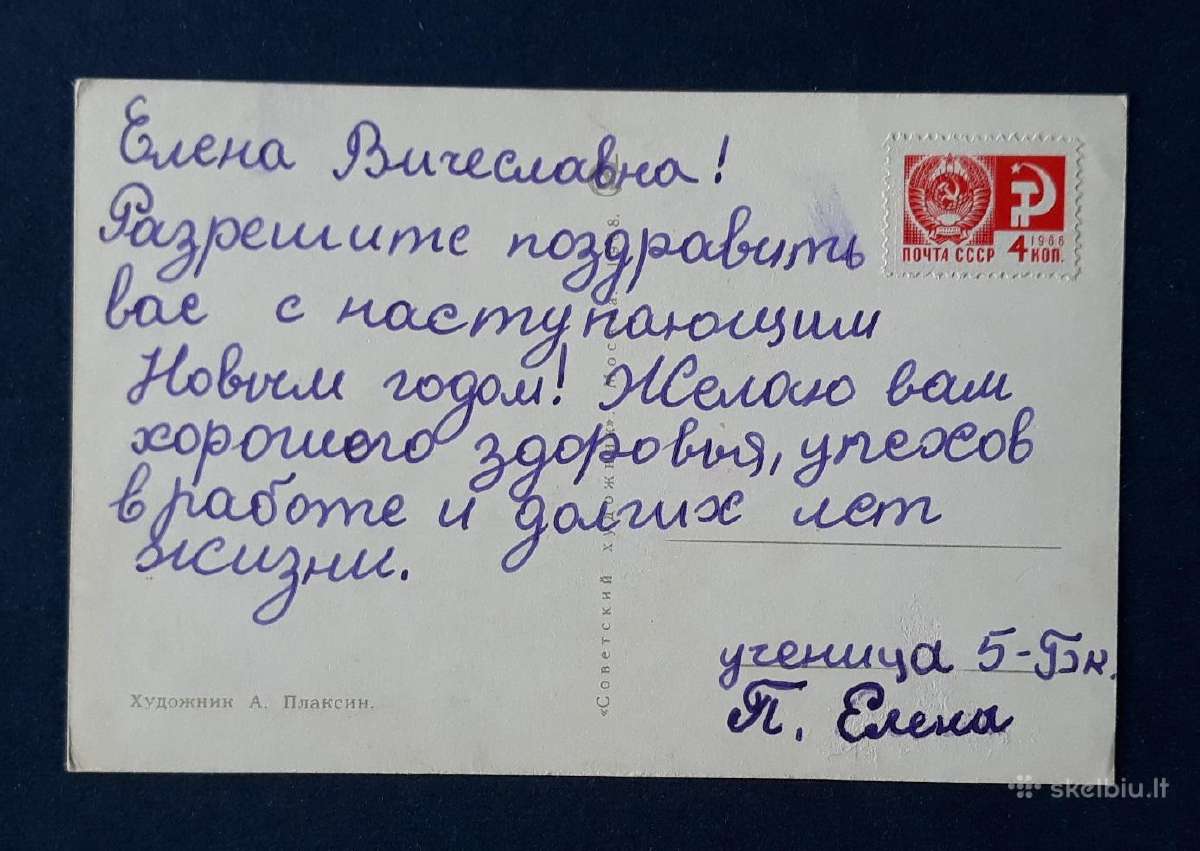 Елена Вичеславна!
Разрешите поздравить
вас с наступающим
Новым годом! Желаю вам
хорошего здоровья, упехов
в работе и долгих лет
жизни.
ученица 5-Бк.
П. Елена
ПОЧТА СССР
1966
4 КОП.
Художник А. Плаксин.
«Советский художник»
skelbiu.lt